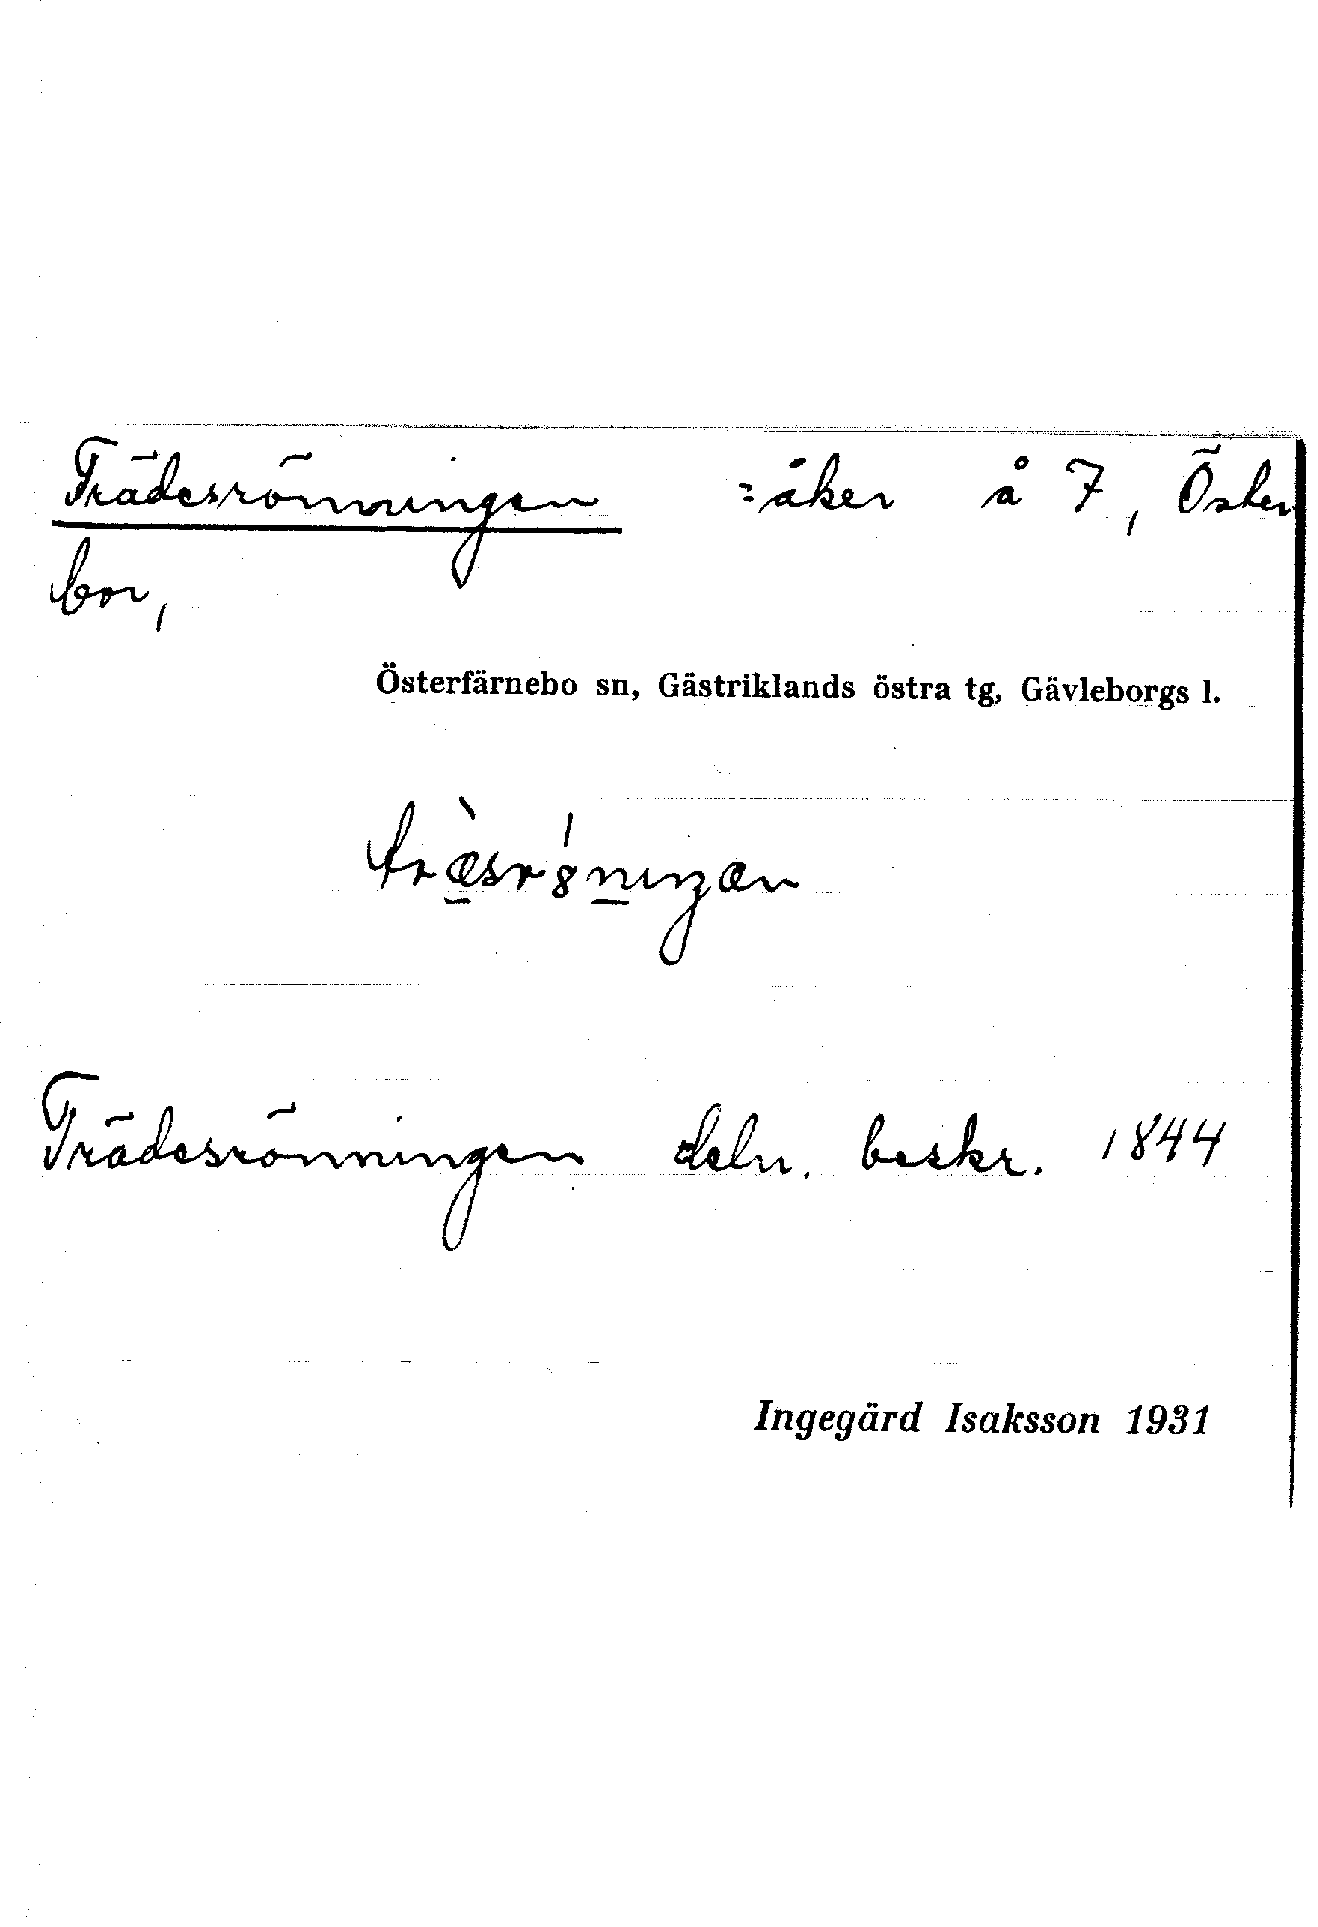 Trädesrönningen = åker å 7, Öster
bor,
Österfärnebo sn, Gästriklands östra tg, Gävleborgs l.
Trädesrönningen deln. beskr. 1844
Ingegärd Isaksson 1931